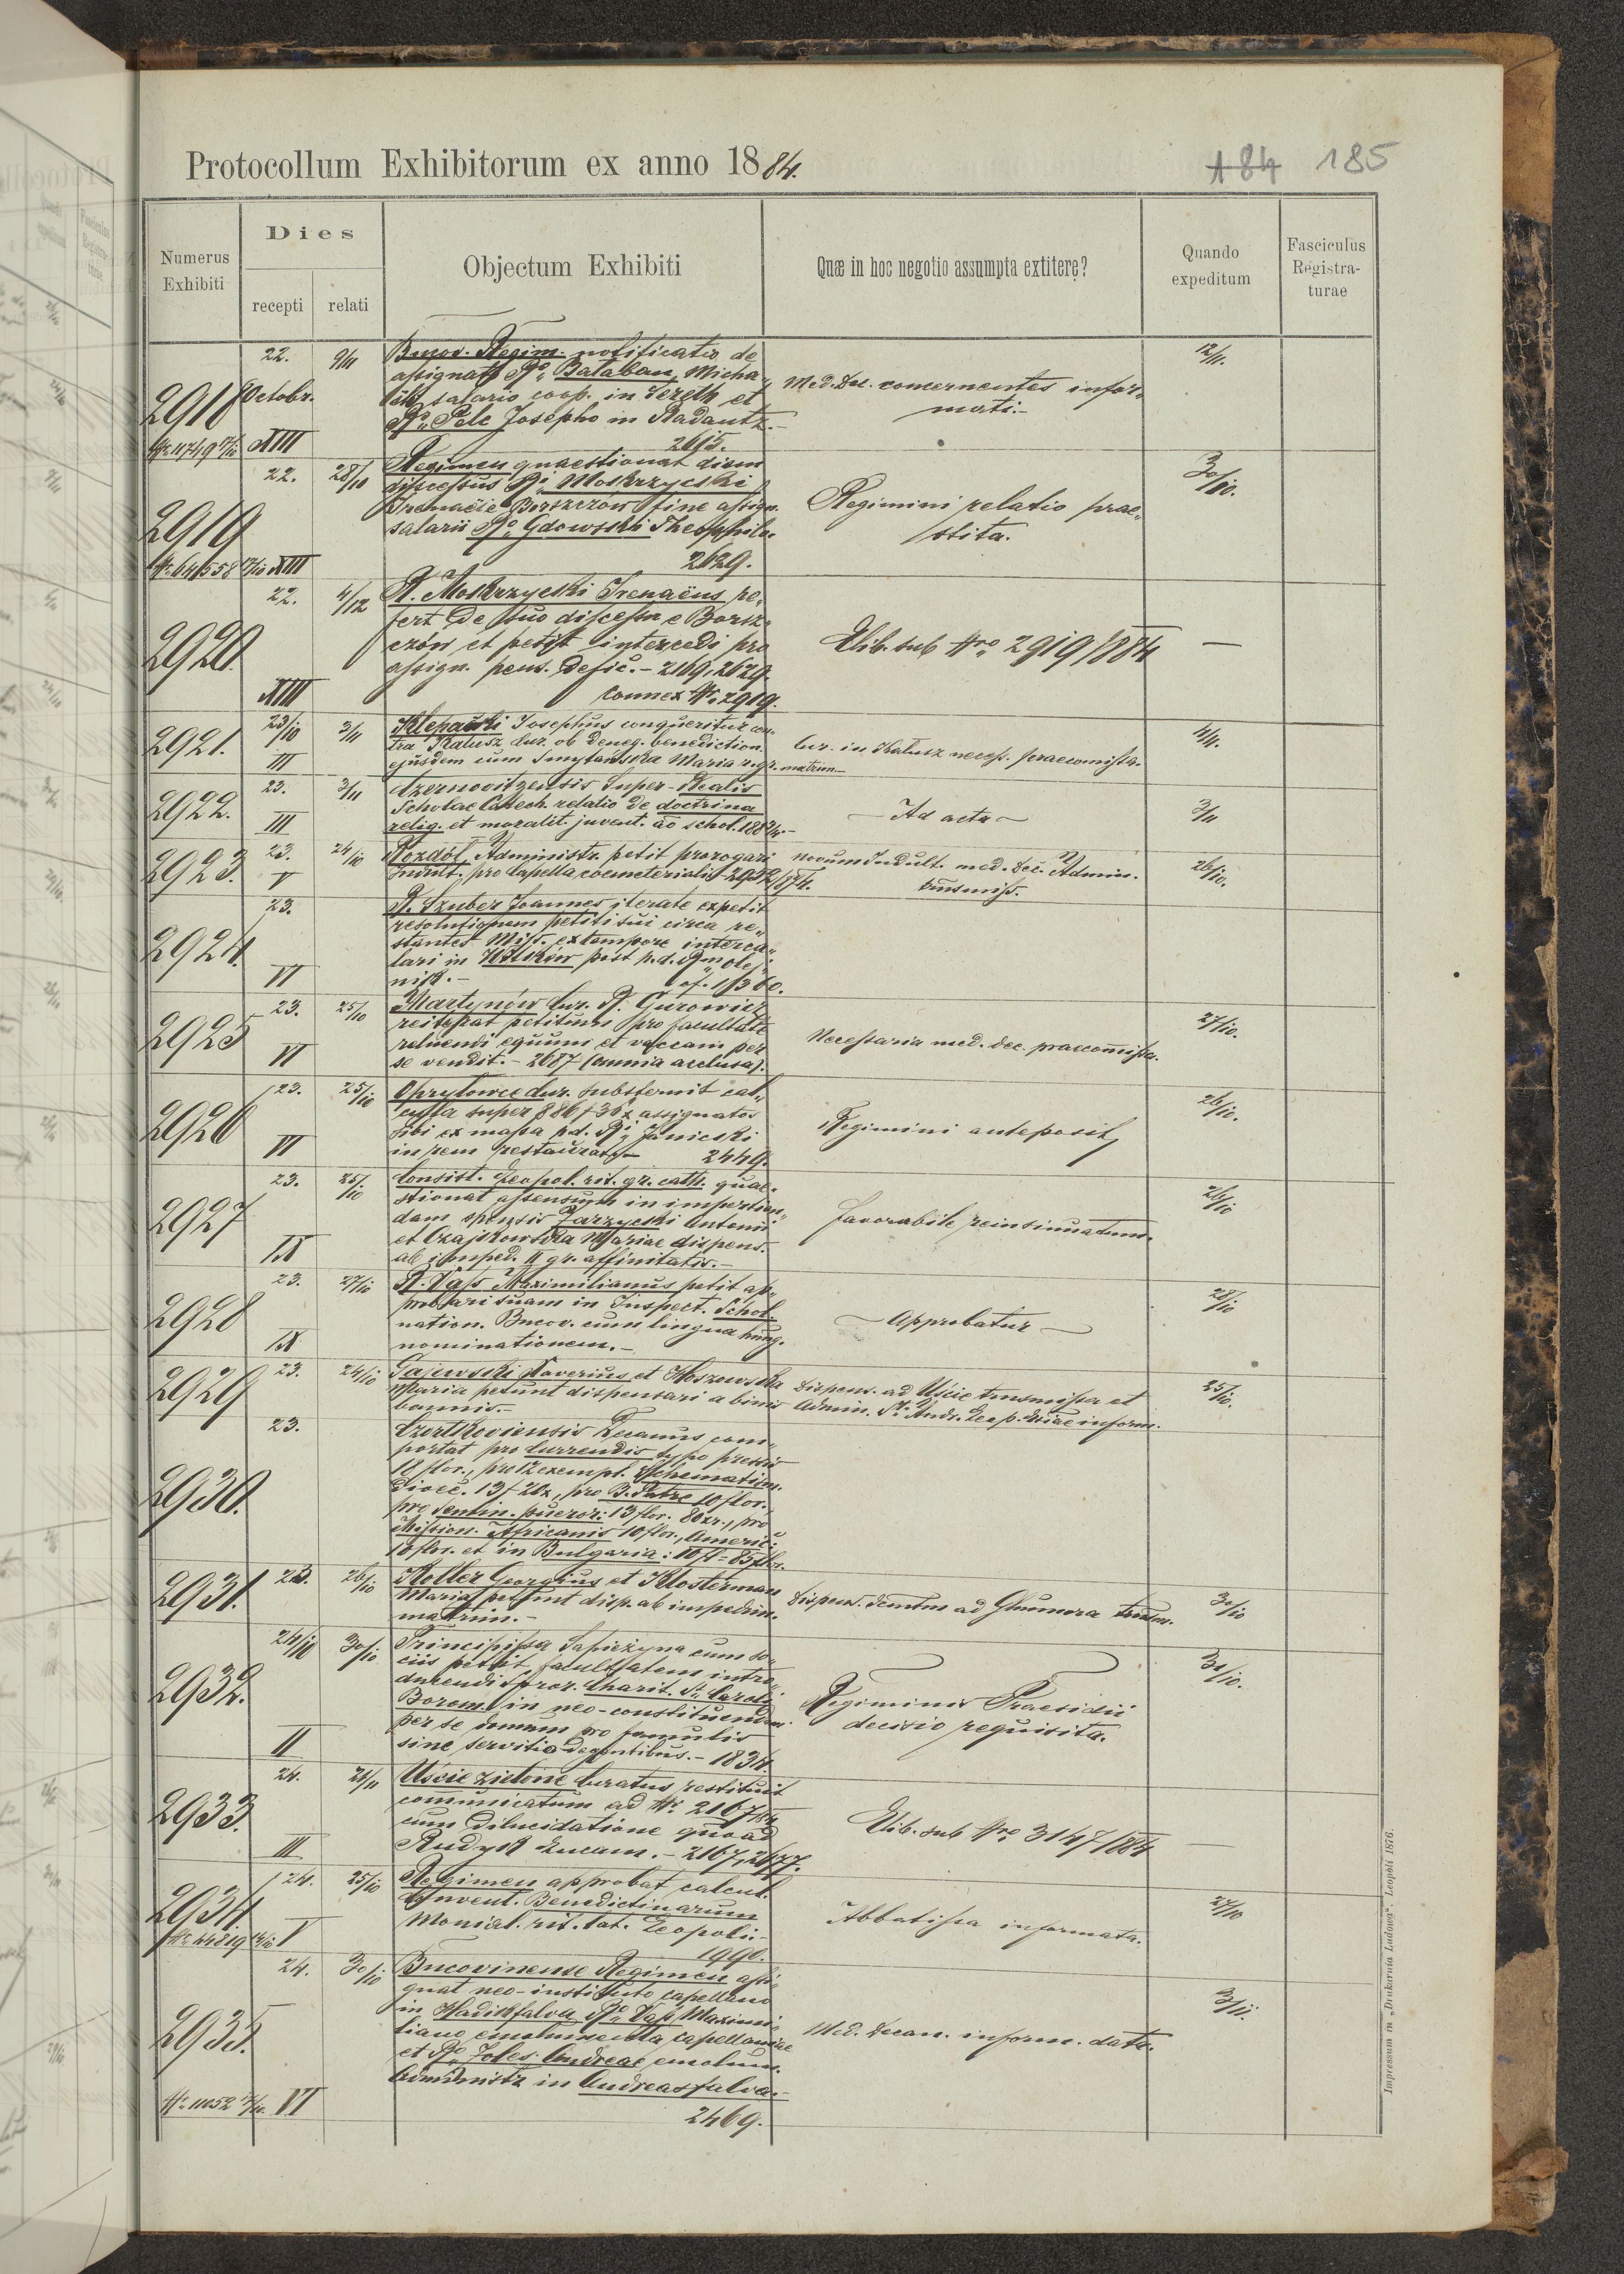 Protocollum Exhibitorum ex anno 1884.
184 185
Numerus Exhibiti
Dies
recepti relati
Objectum Exhibiti
Quæ in hoc negotio assumpta extitere?
Quando expeditum
Fasciculus Registra-turae
2918
22. Octobr. 9/11
XIII
Bucov. Regim. notificatio de
assignato Ro. Balaban Micha„
éli salario coop. in Sereth et
Ro. Pele Josepho in Radautz.–
2615.
Med. Dec. concernentes infor„
mati.–
12/11.
2919
22. 28/10
XIII
Regimen quaestionat diem
discessus Ri. Moskrzycki
Irenaei e Borszczów fine assign.
salarii Ro. Gdowski Theophilo.
2629.
Regimini relatio prae„
stita.
30/10.
2920.
22. 4/12
XIII
R. Moskrzycki Irenaëus re„
fert de suo discessu e Borsz„
czów et petit intercedi pro
assign. pens. defic.– 2169, 2629.
connex Nr. 2919.
Elib. sub Nro. 2919/884
—
2921.
23/10 3/11
III
Klepacki Josephus conqueritur con„
tra Kalusz Cur. ob deneg. benediction.
ejusdem cum Smytańska Maria r. gr. matrim.–
Cur. in Kalusz necess. praecomissa.
4/11.
2922.
23. 3/11
III
Czernovitzensis Super-Realis
Scholae Catech. relatio de doctrina
relig. et moralit. juvent. ao schol. 1883/4.–
– Ad acta –
3/11
2923.
23. 24/10
V
Rozdół Administr. petit prorogari
Indult. pro Capella coemeteriali – 2932/874.
Novum Indult. med. Dec. Admin.
transmiss.
26/10.
2924.
23.
VI
R. Szuber Joannes iterate expetit
resolutionem petiti sui circa re„
stantes Miss. ex tempore interca„
lari in
nik.–
cf. 1/360.
2925
23. 25/10
VI
Martynów Cur. R. Gurowicz
reiterat petitum pro facultate
reluendi equum et vaccam per
se vendit.– 2687 (omnia acclusa).
Necessaria med. dec. praecomissa.
27/10.
2926
23. 25/10
VI
Opryłowce Cur. substernit cal„
cula super 886 f 36 x assignatos
sibi ex massa p.d. Ri. Janicski
in rem restaurat.– 2449.
Regimini anteposit,
26/10.
2927
23. 25/10
IX
Consist. Leopol. rit. gr. cath. quae„
stionat assensum in impertien„
dam sponsis Zarzycki Antonii
et Czajkowska Mariae dispens.
ab imped. II gr. affinitatis.–
favorabile reinsinuatum.
26/10
2928
23. 27/10
IX
R. Vass Maximilianus petit ap„
probari suam in Inspect. Schol.
nation. Bucov. cum lingua hung.
nominationem.–
– Approbatur –
28/10
2929
23. 24/10
Gajewski Xaverius et Hoszowska
Maria petunt dispensari a binis
bannis.–
Dispens. ad Uście transmissa et
Admin. St. Andr. Leop. inform.
25/10.
2930.
23.
Czortkoviensis Decanus com„
portat pro Currendis typo pressis
18 flor., pro 12 exempl. Schematism.
dioec. 13 f 20x, pro B. Patre 10 flor.
pro Semin. pueror: 13 flor. 80 xr., pro
Mission. Africanis 10 flor., Americ.
10 flor. et in Bulgaria: 10 fl = 85 flor.
2931.
23. 26/10
Koller Georgius et Klosterman
Maria petunt disp. ab impedim.
matrim.–
Dispens. ad Ghumora transm.
30/10
2932.
24/10 30/10
II
Principissa Sapieżyna cum so„
ciis petit facultatem intro„
ducendi Soror. Charit. St. Caroli
Borom. in neo-constituendam
per se domum pro famulis
sine servitio degentibus.– 1834.
Regiminis Praesidii
decisio requisita.
30/10.
2933.
24. 21/11
III
Uście zielone Curatus restituit
comunicatum ad Nr. 2167/84
cum dilucidatione quoad
Rudyk Lucam.– 2167, 2477.
Elib. sub Nro. 3147/884
—
2934.
24. 25/10
V
Regimen approbat calcul.
Convent. Benedictinarum
Monial. rit. lat. Leopoli.–
1990.
Abbatissa informata.
27/10
2935.
24. 30/10
VI
Bucovinense Regimen assi„
gnat neo-instituto capellano
in Hadikfalva Ro. Vass Maximi„
liano emolumenta capellaniae
et Ro. Joles Andreae emolum.
Administr. in Andreasfalva.–
2469.
Med. Decan. inform. data.
3/11.
Impressum in „Drukarnia Ludowa“. Leopoli 1876.